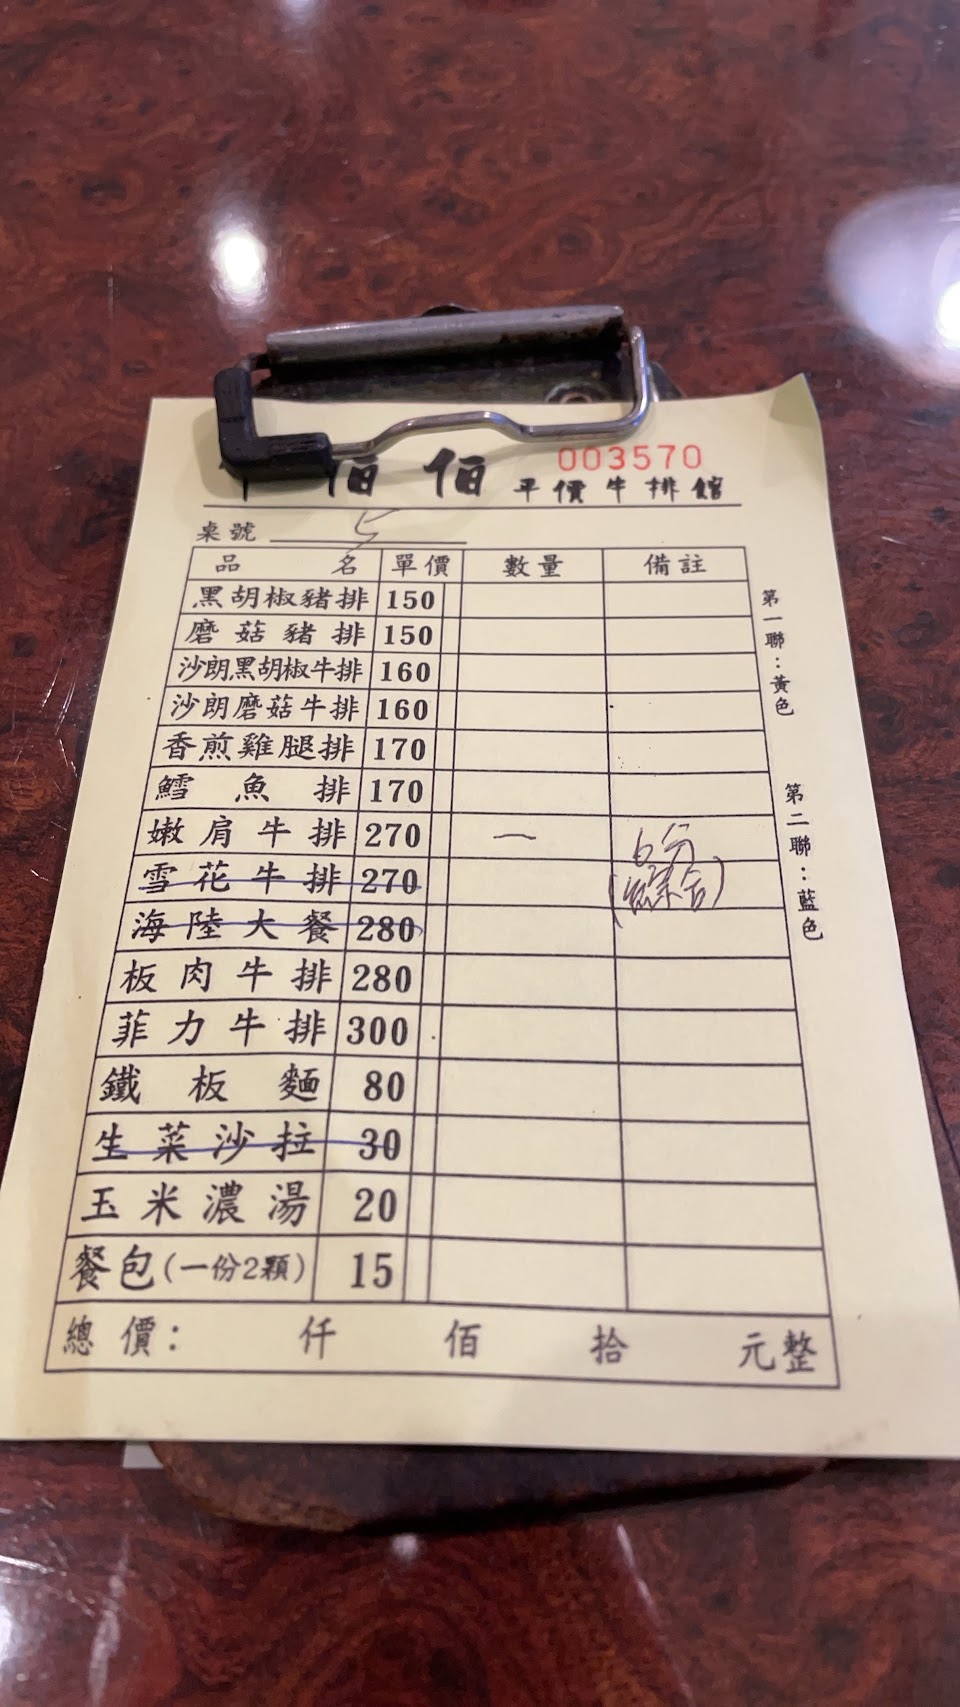 003570
佰佰 平價牛排館
桌號 5
品名 單價 數量 備註
黑胡椒豬排 150
磨菇豬排 150
沙朗黑胡椒牛排 160
沙朗磨菇牛排 160
香煎雞腿排 170
鱈魚排 170
嫩肩牛排 270 一 6分
雪花牛排 270 (綜合)
海陸大餐 280
板肉牛排 280
菲力牛排 300
鐵板麵 80
生菜沙拉 30
玉米濃湯 20
餐包(一份2顆) 15
總價: 仟 佰 拾 元整
第一聯:黃色
第二聯:藍色